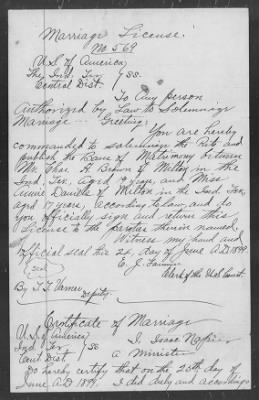 Marriage License.
No 569
U.S. of America
The Ind. Ter. } SS.
Central Dist.
To Any Person
Authorized by Law to Solemnize
Marriage Greeting:
You are hereby
commanded to solemnize the Rite and
publish the Bans of Matrimony between
Mr. Chas. A. Brown of Milton in the
Ind. Ter. Aged years, and Miss
Annie Daniels of Milton in the Ind. Ter.
aged 17 years, according to law, and do
you officially sign and return this
License to the parties therein named.
Witness my hand and
official seal this day of June A.D. 1899.
(seal) E. J. Fannin
Clerk of the U.S. Court
By T. T. Varner
Deputy
Certificate of Marriage
U.S. of America
Ind. Ter. } SS I, Isaac Napier
Cent Dist. a Minister
do hereby certify that on the 25th day of
June A.D. 1899, I did duly and according